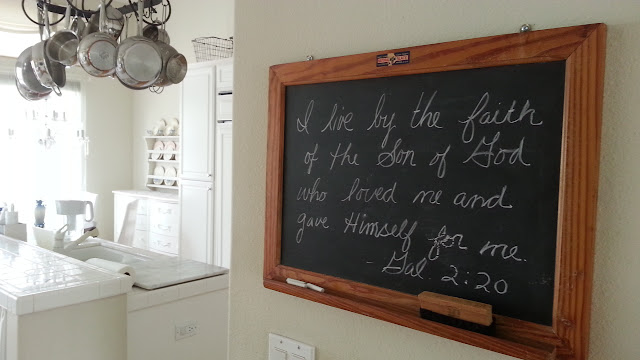 I live by the faith
of the Son of God
who loved me and
gave Himself for me.
- Gal. 2:20